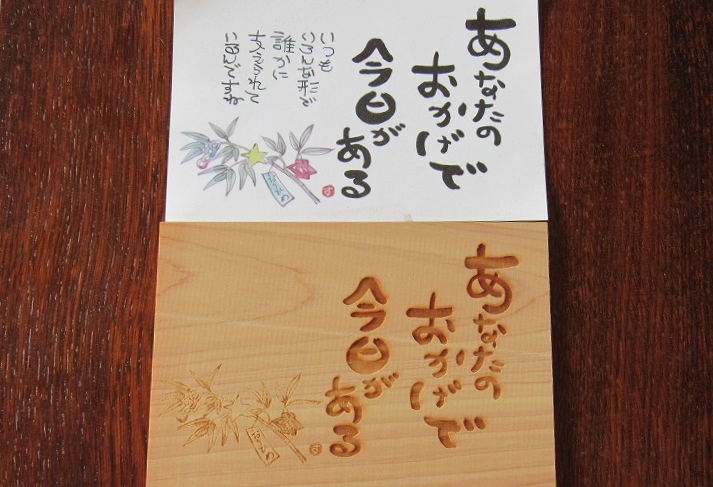 あなたの
おかげで
今日がある
いつも
いろんな形で
誰かに
支えられて
いるんですね
あなたの
おかげで
今日がある